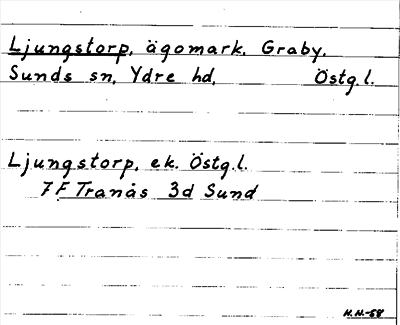 Ljungstorp, ägomark. Graby.
Sunds sn, Ydre hd, Östg.l.
Ljungstorp, ek. Östg.l.
7 F Tranås 3d Sund
H.H.-58